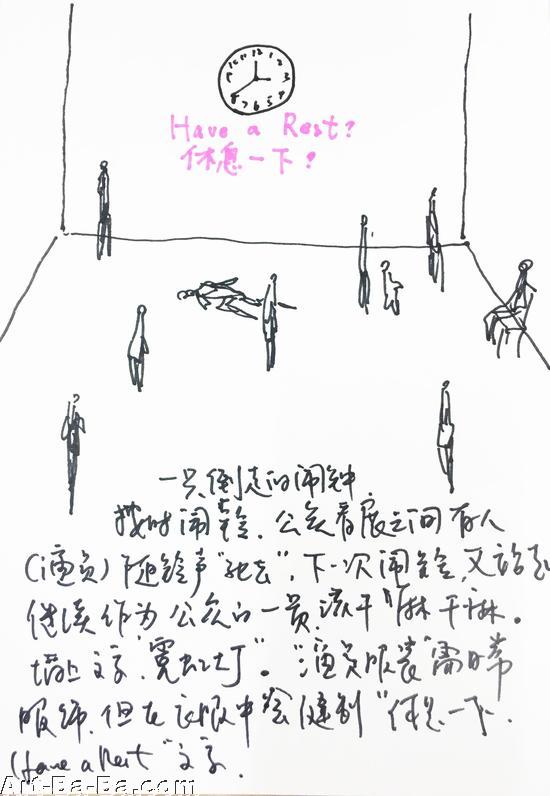 Have a Rest?
休息一下?
一只倒走的闹钟
按时闹铃. 公众看展之间有人
(演员)随铃声"死去", 下一次闹铃, 又
继续作为公众的一员,
墙上文字"霓虹灯"。"演员服装"需日常
服饰, 但在衣服中会缝制"休息一下.
Have a Rest"文字.
Art-Ba-Ba.com